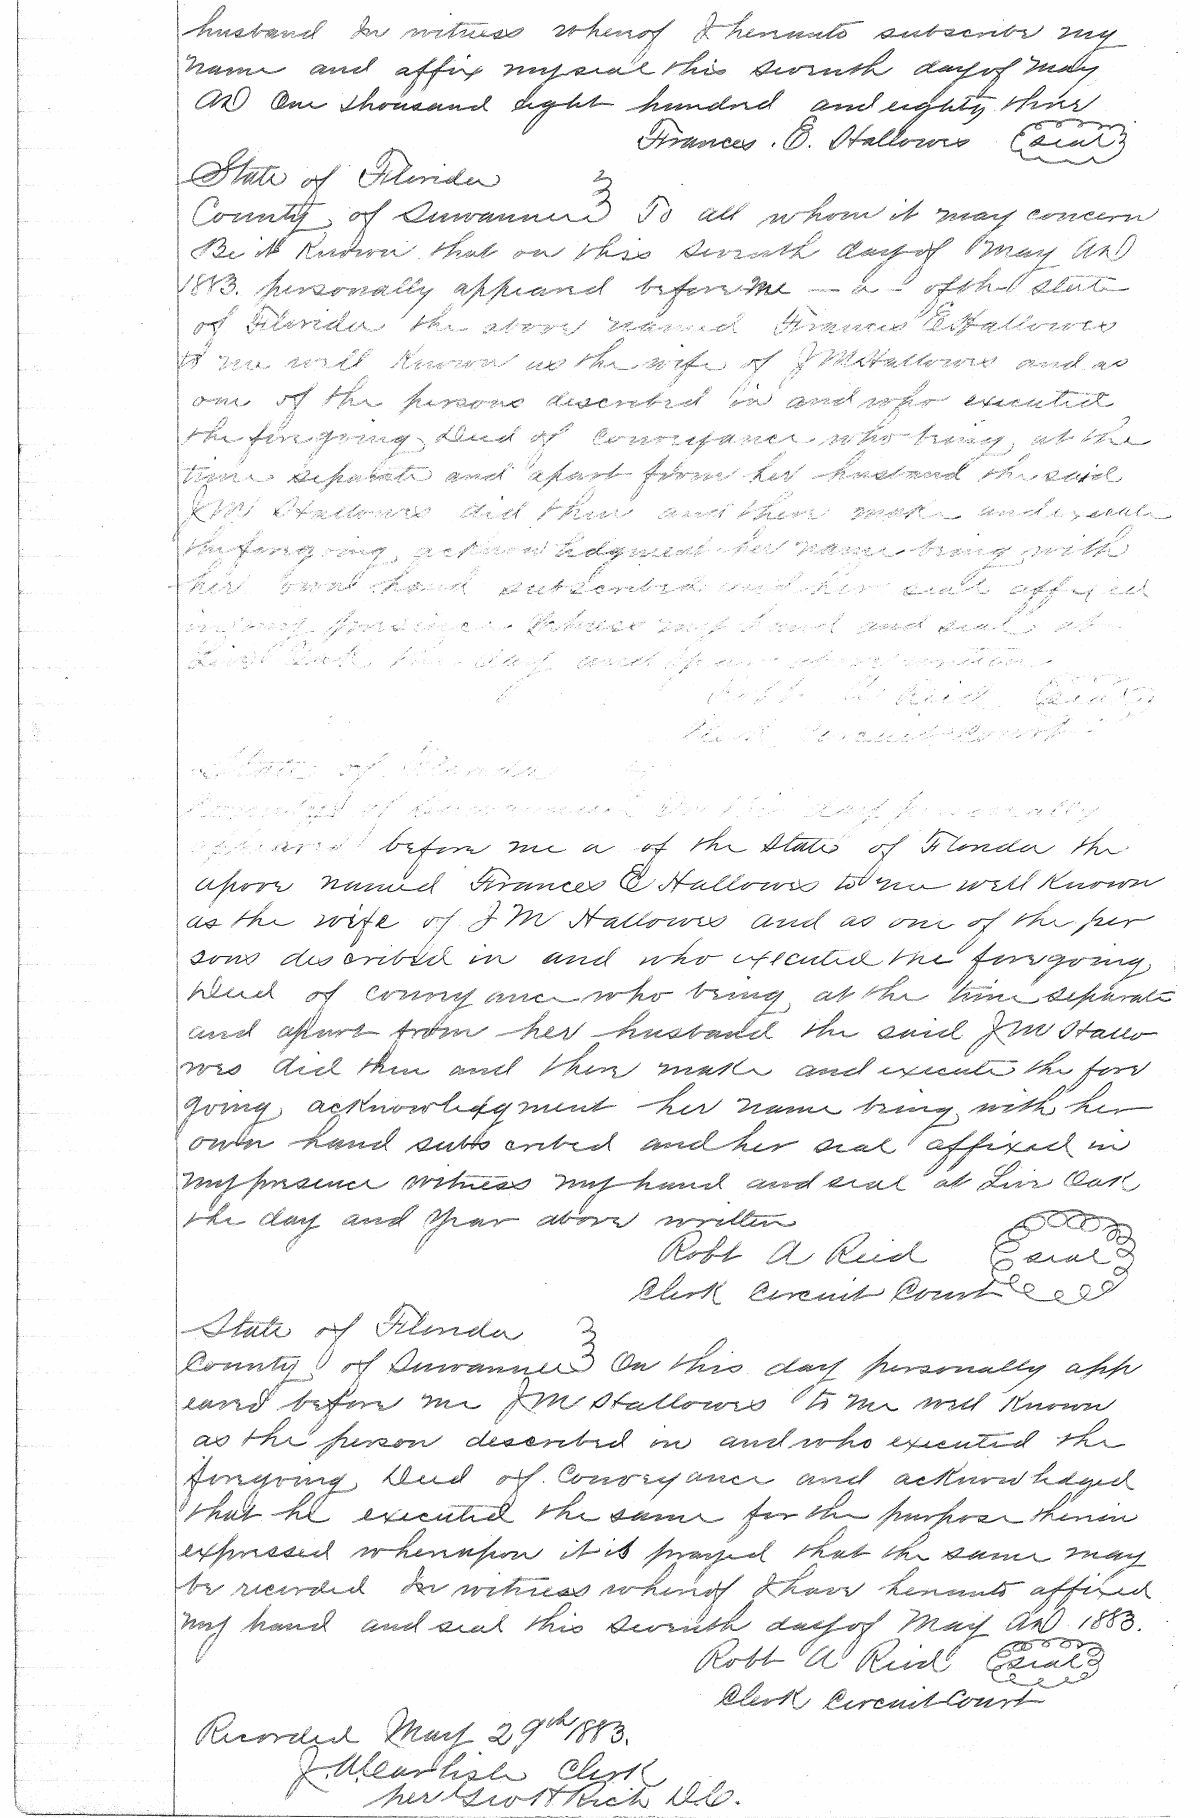 husband In witness whereof I hereunto subscribe my
name and affix my seal this seventh day of May
AD One thousand eight hundred and eighty three
Frances . E. Hallowes seal
State of Florida
County of Suwannee To all whom it may concern
Be it Known that on this seventh day of May AD
1883. personally appeared before me — a - of the State
of Florida the above named Frances E Hallowes
to me well Known as the wife of J M Hallowes and as
one of the persons described in and who executed
the foregoing Deed of Conveyance who being at the
time separate and apart from her husband the said
J M Hallowes did then and there make and execute
the foregoing acknowledgment her name being with
her own hand subscribed and her seal affixed
in my presence Witness my hand and seal at
Live Oak the day and year above written
Robt A Reid seal
Clerk Circuit Court
State of Florida
County of Suwannee On this day personally
appeared before me a of the State of Florida the
above named Frances E Hallowes to me well Known
as the wife of J M Hallowes and as one of the per
sons described in and who executed the foregoing
Deed of conveyance who being at the time separate
and apart from her husband the said J M Hallo
wes did then and there make and execute the fore
going acknowledgment her name being with her
own hand subscribed and her seal affixed in
my presence witness my hand and seal at Live Oak
the day and year above written
Robt A Reid seal
Clerk Circuit Court
State of Florida
County of Suwannee On this day personally app
eared before me J M Hallowes to me well Known
as the person described in and who executed the
foregoing Deed of Conveyance and acknowledged
that he executed the same for the purpose therein
expressed whereupon it is prayed that the same may
be recorded In witness whereof I have hereunto affixed
my hand and seal this seventh day of May AD 1883.
Robt A Reid seal
Clerk Circuit Court
Recorded May 29th 1883.
J. Clerk
per Rich D.C.